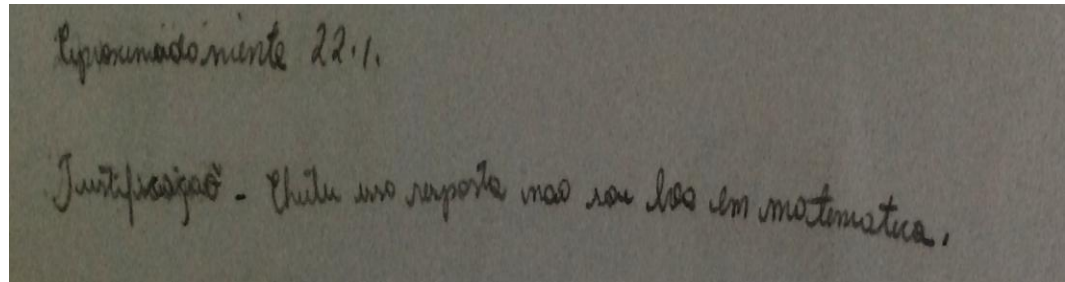 Aproximadamente 22%.
Justificação - Chutei essa resposta não sou boa em matematica.